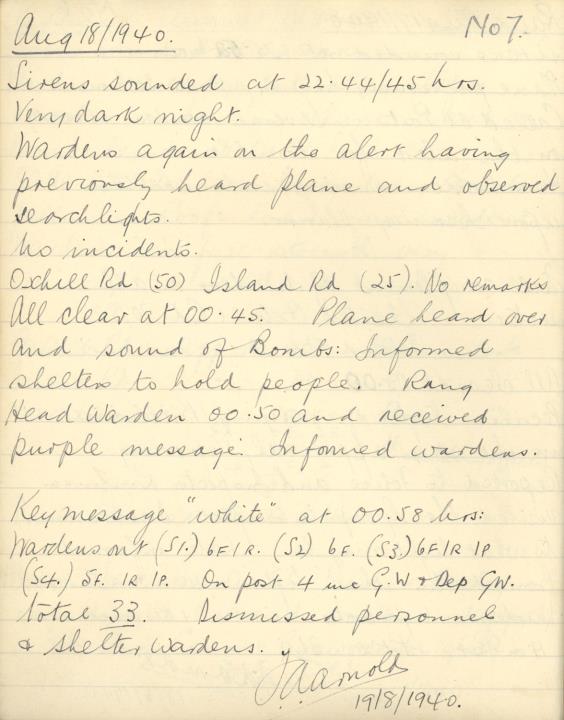 Aug 18/1940. No 7.
Sirens sounded at 22.44/45 hrs.
Very dark night.
Wardens again on the alert having
previously heard plane and observed
searchlights.
No incidents.
Oxhill Rd (50) Island Rd (25). No remarks
All clear at 00.45. Plane heard over
and sound of Bombs: Informed
shelters to hold people. Rang
Head Warden 00.50 and received
purple message. Informed wardens.
Key message "white" at 00.58 hrs:
Wardens out (S1.) 6F1R. (S2) 6F. (S3.) 6F1R 1P
(S4.) 5F. 1R 1P. On post 4 inc G.W & Dep GW.
total 33. Dismissed personnel
& shelter wardens.
J.A. Arnold
19/8/1940.